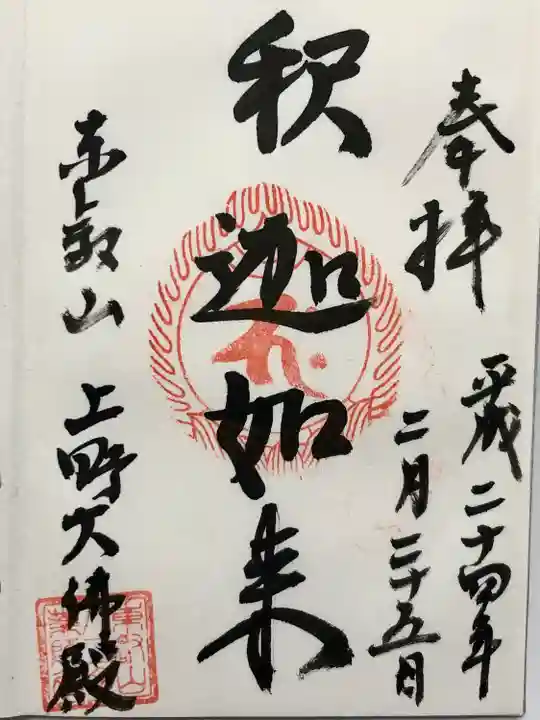 奉拝
平成二十四年
二月二十五日
釈迦如来
東叡山 上野大佛殿